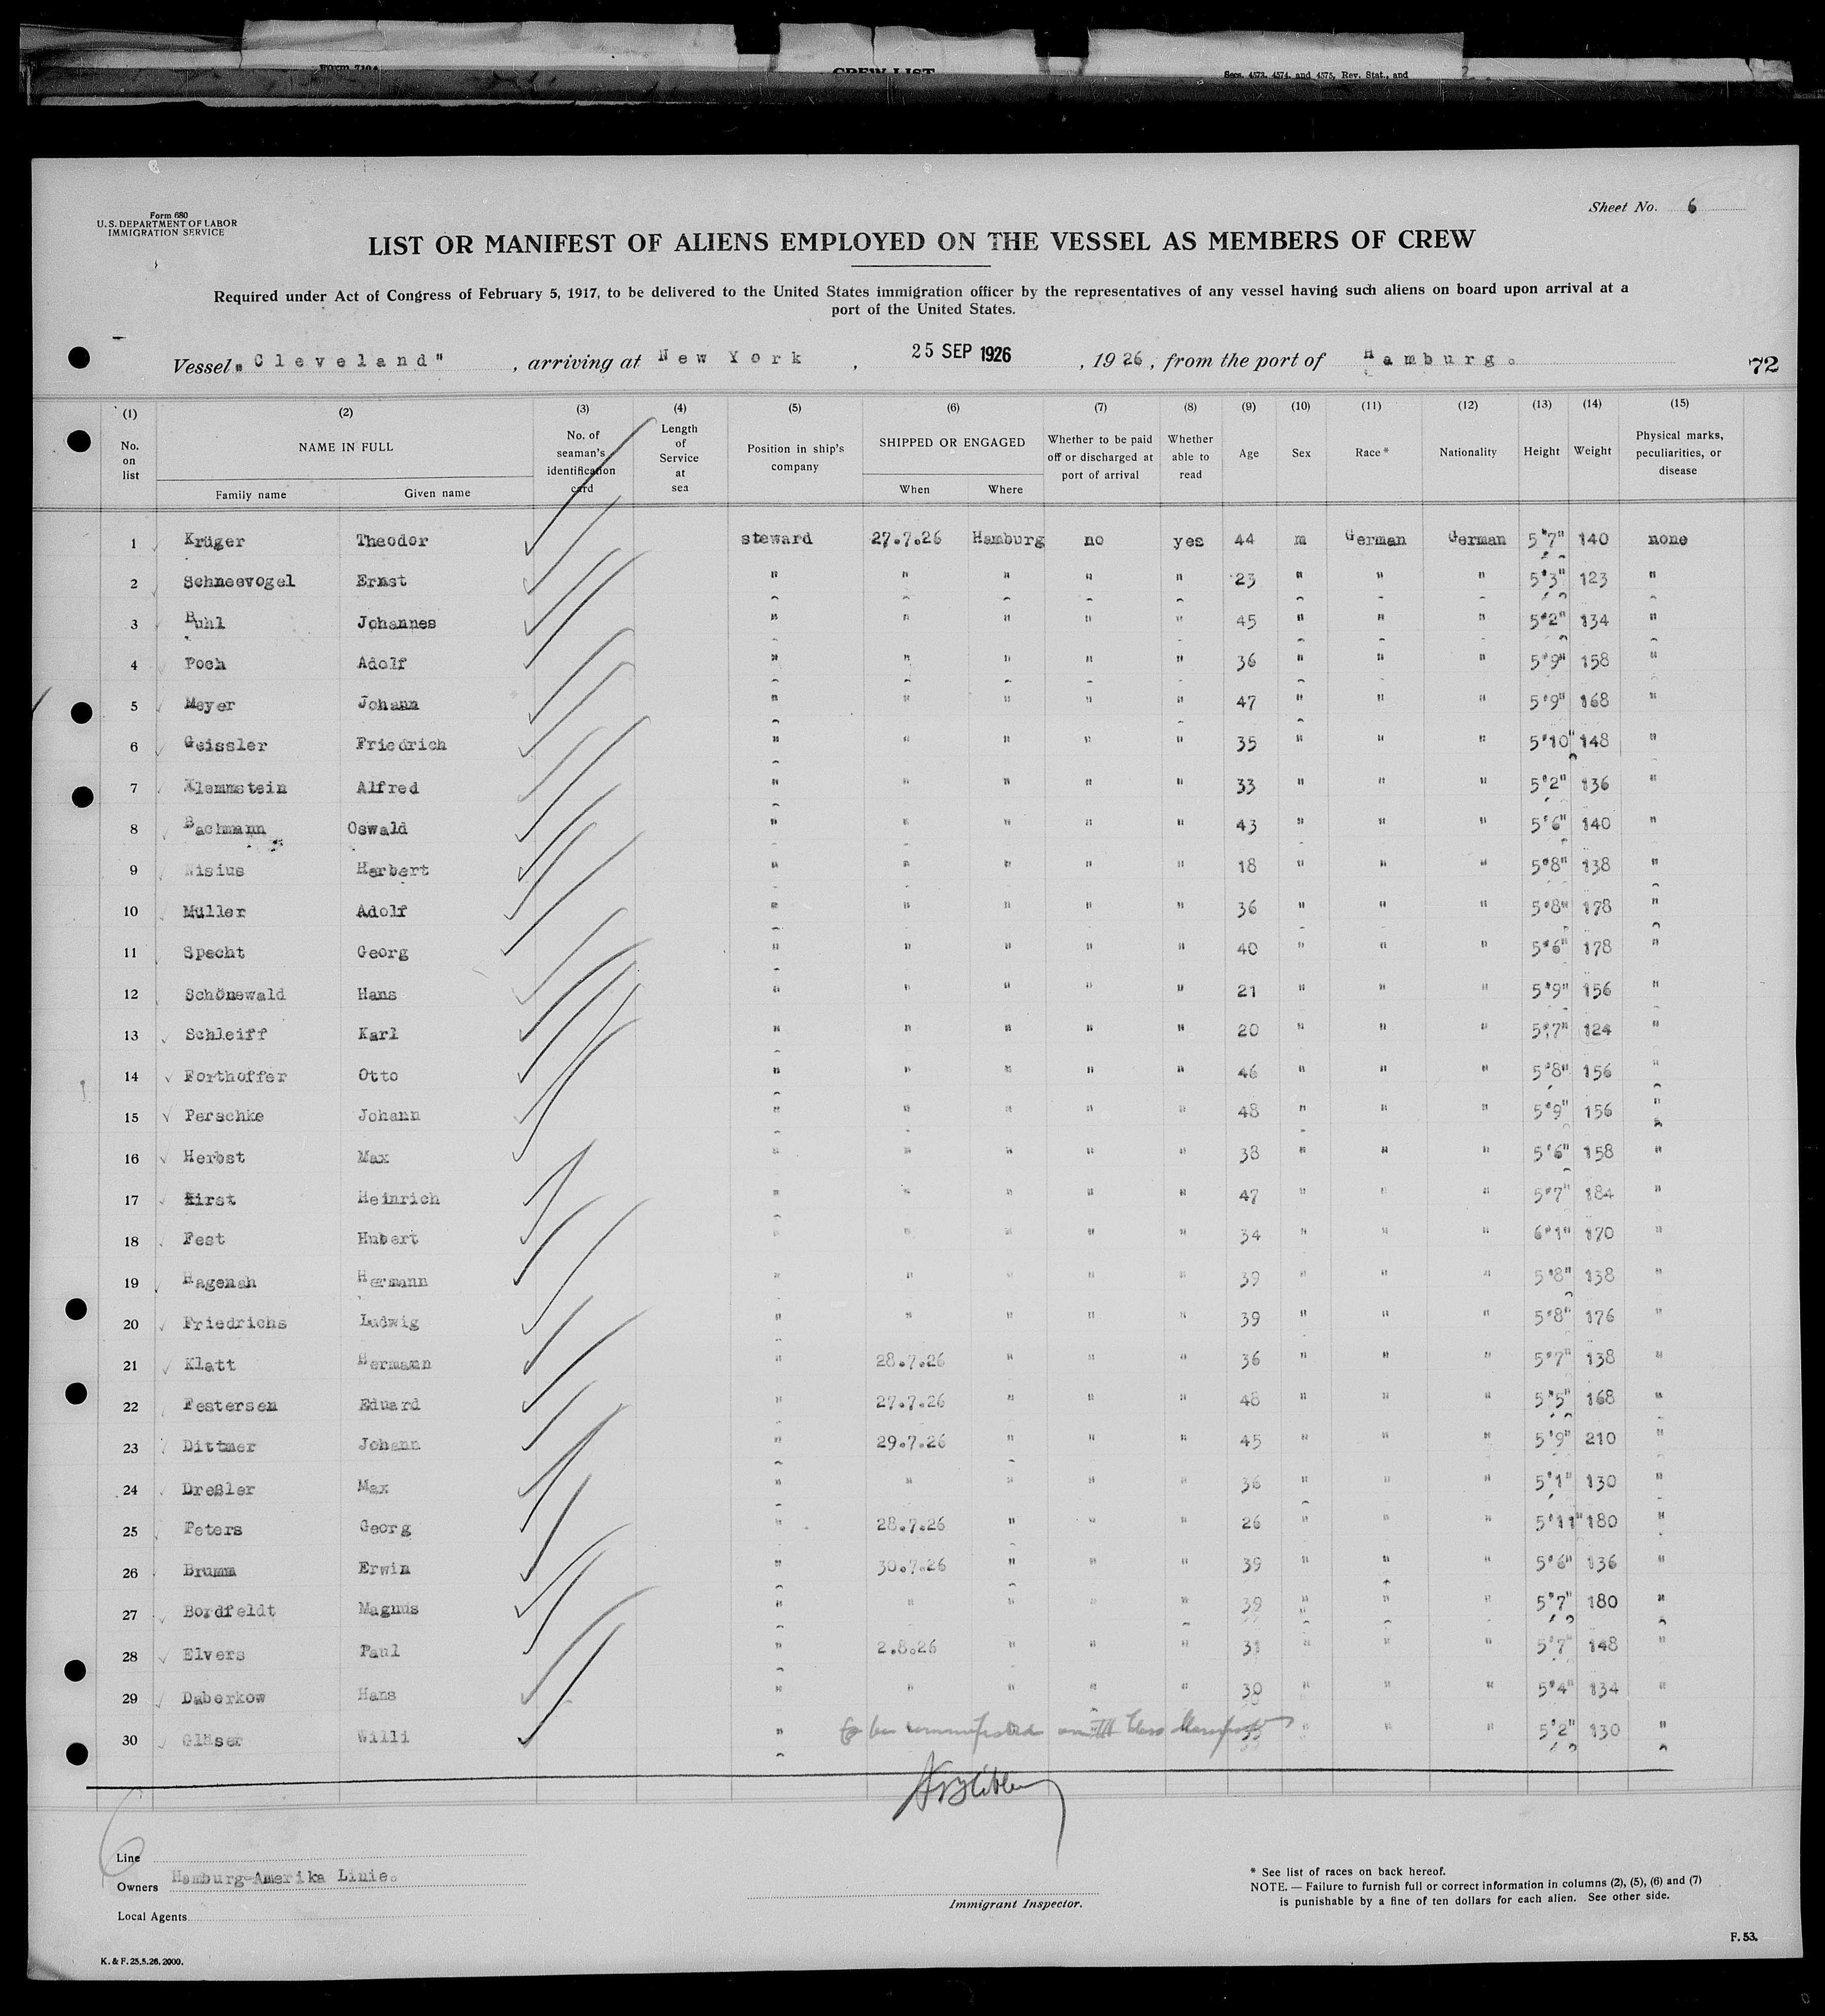 Form 710A
CREW LIST
Secs. 4573, 4574, and 4575, Rev. Stat., and
Form 680
U. S. DEPARTMENT OF LABOR
IMMIGRATION SERVICE
Sheet No. 6
LIST OR MANIFEST OF ALIENS EMPLOYED ON THE VESSEL AS MEMBERS OF CREW
Required under Act of Congress of February 5, 1917, to be delivered to the United States immigration officer by the representatives of any vessel having such aliens on board upon arrival at a
port of the United States.
Vessel "Cleveland", arriving at New York, 25 SEP 1926, 1926, from the port of Hamburg. 72
(1) (2) (3) (4) (5) (6) (7) (8) (9) (10) (11) (12) (13) (14) (15)
No. on list NAME IN FULL No. of seaman's identification card Length of Service at sea Position in ship's company SHIPPED OR ENGAGED Whether to be paid off or discharged at port of arrival Whether able to read Age Sex Race* Nationality Height Weight Physical marks, peculiarities, or disease
Family name Given name When Where
1 Krüger Theodor steward 27.7.26 Hamburg no yes 44 m German German 5'7" 140 none
2 Schneevogel Ernst " " " " " 23 " " " 5'3" 123 "
3 Buhl Johannes " " " " " 45 " " " 5'2" 134 "
4 Poch Adolf " " " " " 36 " " " 5'9" 158 "
5 Meyer Johann " " " " " 47 " " " 5'9" 168 "
6 Geissler Friedrich " " " " " 35 " " " 5'10" 148 "
7 Klemmstein Alfred " " " " " 33 " " " 5'2" 136 "
8 Bachmann Oswald " " " " " 43 " " " 5'6" 140 "
9 Nisius Herbert " " " " " 18 " " " 5'8" 138 "
10 Müller Adolf " " " " " 36 " " " 5'8" 178 "
11 Specht Georg " " " " " 40 " " " 5'6" 178 "
12 Schönewald Hans " " " " " 21 " " " 5'9" 156 "
13 Schleiff Karl " " " " " 20 " " " 5'7" 124 "
14 Forthoffer Otto " " " " " 46 " " " 5'8" 156 "
15 Perschke Johann " " " " " 48 " " " 5'9" 156 "
16 Herbst Max " " " " " 38 " " " 5'6" 158 "
17 Kirst Heinrich " " " " " 47 " " " 5'7" 184 "
18 Fest Hubert " " " " " 34 " " " 6'1" 170 "
19 Hagenah Hermann " " " " " 39 " " " 5'8" 138 "
20 Friedrichs Ludwig " " " " " 39 " " " 5'8" 176 "
21 Klatt Hermann " 28.7.26 " " " 36 " " " 5'7" 138 "
22 Festersen Eduard " 27.7.26 " " " 48 " " " 5'5" 168 "
23 Dittmer Johann " 29.7.26 " " " 45 " " " 5'9" 210 "
24 Dreßler Max " " " " " 36 " " " 5'1" 130 "
25 Peters Georg " 28.7.26 " " " 26 " " " 5'11" 180 "
26 Brumm Erwin " 30.7.26 " " " 39 " " " 5'6" 136 "
27 Bordfeldt Magnus " " " " " 39 " " " 5'7" 180 "
28 Elvers Paul " 2.8.26 " " " 31 " " " 5'7" 148 "
29 Daberkow Hans " " " " " 30 " " " 5'4" 134 "
30 Gläser Willi " to be on III Class Manifest 35 " " " 5'2" 130 "
Line
Owners Hamburg-Amerika Linie.
Local Agents
Immigrant Inspector.
* See list of races on back hereof.
NOTE. — Failure to furnish full or correct information in columns (2), (5), (6) and (7)
is punishable by a fine of ten dollars for each alien. See other side.
F. 53.
K. & F. 25.5.26. 2000.